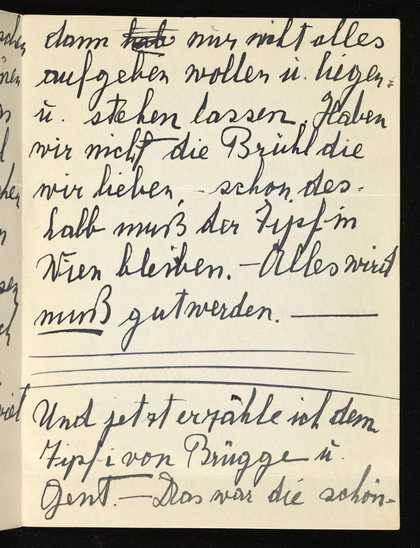 dann hab nur nicht alles
aufgeben wollen u. liegen=
u. stehen lassen. Haben
wir nicht die Brühl die
wir lieben, – schon des=
halb muß der Zipf in
Wien bleiben. – Alles wird
muß gut werden. —
Und jetzt erzähle ich dem
Zipfi von Brügge u.
Gent. – Das war die schön=